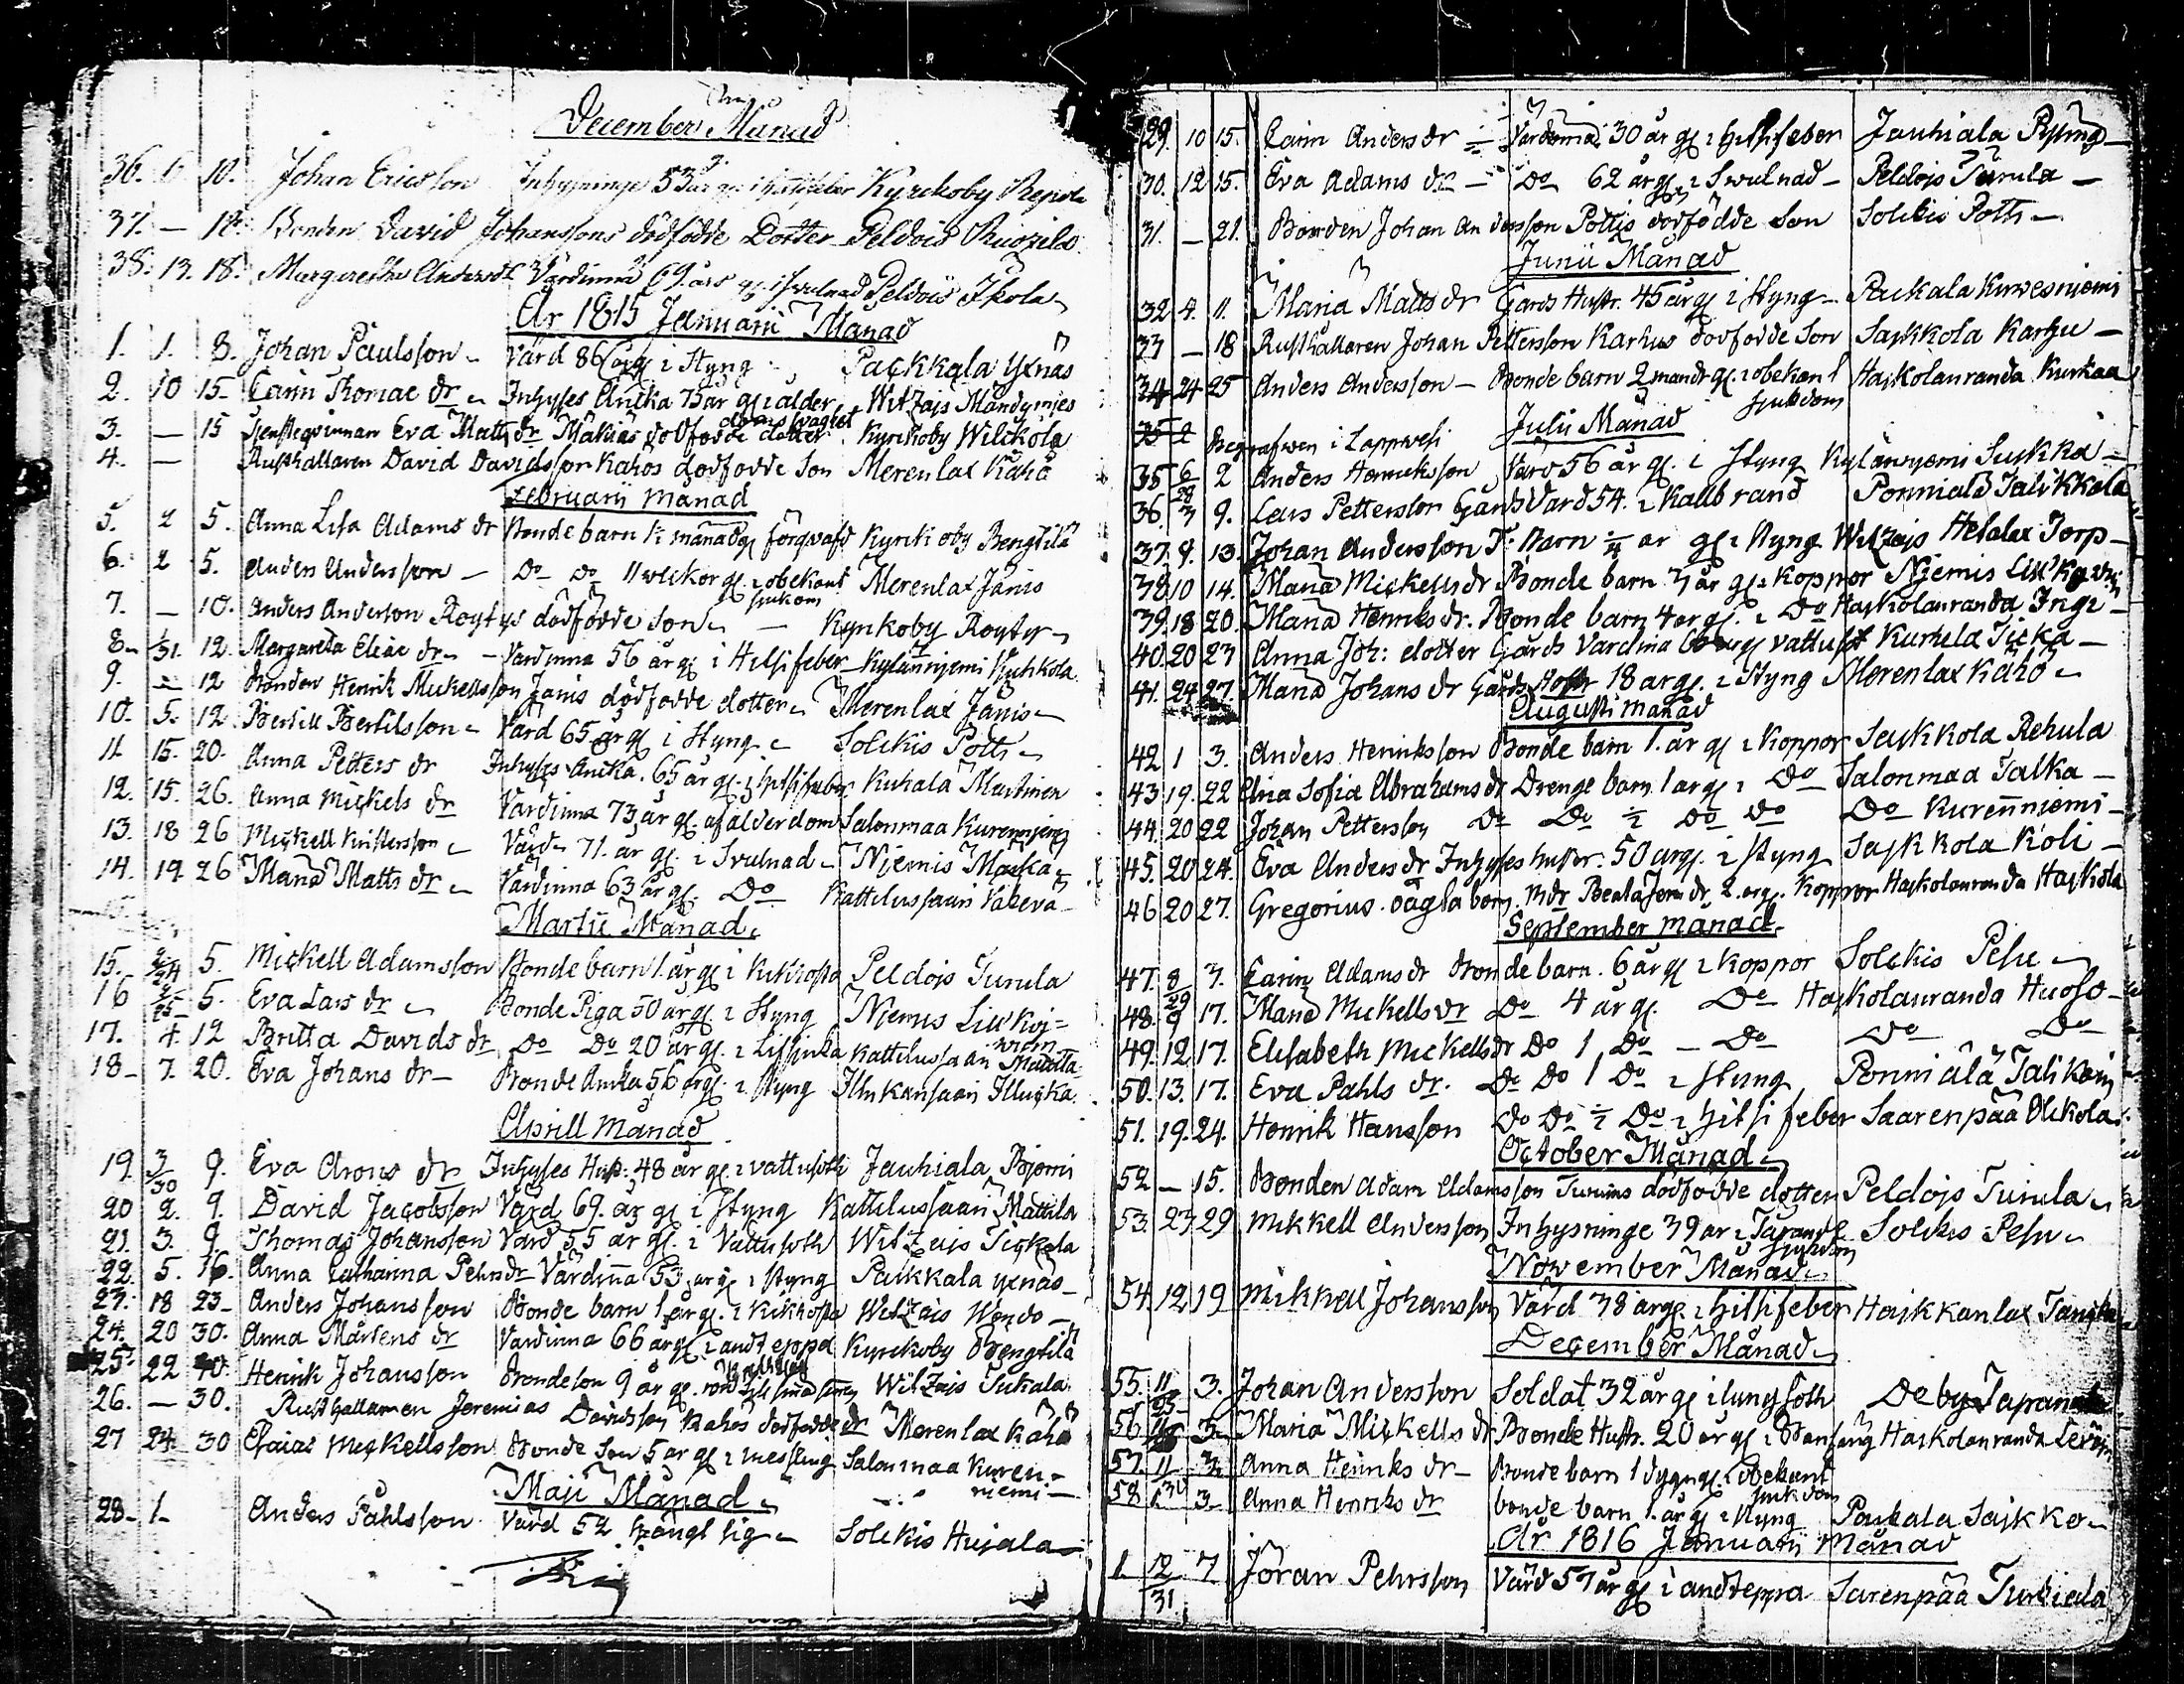 December Månad
36. 6. 10. Johan Ericsson Inhysinge 53 år gl. i Kyrckoby
37. — 10. Bonden David Johanssons dödfödde Dotter Peldois
38. 13. 18. Margaretha Andersdr Värdinna 69. års gl i svulnad Peldois Ikola
År 1815 Januarii Månad
1. 1. 8. Johan Paulsson Värd 86 år gl i Styng Packkala Yxnäs
2. 10 15 Carin Thomae dr Inhyses Ancka 75 år gl i ålder doms svaghet Witzais
3. — 15 Tjensteqvinnan Eva Matts dr Mäkiäs dödfödde dotter Kyrckoby Wilckola
4. — Rusthållaren David Davidsson Kahos dödfödde Son Merenlax Kähö
Februarii månad
5. 2 5. Anna Lisa Adams dr Bonde barn månad gl förqvafd Kyrckoby Bengtilä
6. 2 5. Anders Andersson — Do Do 11 veckor gl i obekant sjukdom Merenlax Jänis
7. — 10. Anders Anderson Roytys dödfödde Son — Kyrckoby Royty
8. 1/31. 12 Margareta Eliae dr — Värdinna 56 år gl i Hetsifeber Kylänniemi
9. — 12 Bonden Henrik Mickellsson Jänis dödfödde dotter Merenlax Jänis
10. 5. 12. Bertill Bertilsson Värd 65 år gl i Styng Solckis Potti
11. 15. 20. Anna Petters dr Inhyses Ancka 65 år gl i hetsifeber Kukala Martinen
12. 15. 26. Anna Mickels dr Värdinna 73 år gl af ålderdom Salonmaa Kurenniemi
13. 18 26 Mickell Kristersson Värd 71. år gl. i Svulnad Niemis
14. 19. 26 Maria Matts dr Värdinna 63 år gl. Do Kattelussaari
Martii Månad
15. 2/24 5. Mickell Adamsson Bonde barn 1. år gl i Kikhosta Peldois Turula
16 2/25 5. Eva Lars dr Bonde Piga 50 år gl i Styng Niemis
17. 4. 12 Britta Davids dr Do Do 20 år gl. i Kattelussaari
18 7. 20. Eva Johans dr Bonde Ancka 56 år gl. i Styng
Aprill Månad
19. 3/30 9. Eva Arons dr Inhyses Hust: 48 år gl. i vattusoth Jauhiala
20 2. 9. David Jacobsson Värd 69. år gl i Styng Kattelussaari Mattila
21. 3. 9 Thomas Johansson Värd 55 år gl. i Vattusoth Witzais
22. 5. 16. Anna Catharina Pehrs dr Värdinna 53 år gl i Styng Packkala Yxnäs
23. 18 23 Anders Johansson Bonde barn 1 år gl. i Kikhosta Witzais
24. 20 30. Anna Mårtens dr Värdinna 66 år gl i andteppa Kyrckoby Bengtilä
25. 22 Henrik Johansson Bondeson 9 år gl. Witzais
26. — 30. Rusthållaren Jeremias Davidsson Kahos dödfödde dr Merenlax Kähö
27 24. 30 Esaias Mickellsson Bonde Son 5 år gl i messling Salonmaa Kurenniemi
Maji Månad
28. 1. Anders Påhlsson Värd 52 hängt sig Solckis Hujala
29. 10 15. Carin Anders dr Värdinna 30 år gl i hetsifeber Jauhiala
30. 12 15. Eva Adams dr — Do 62 år gl i Svulnad — Peldois Turula —
31. — 21. Bonden Johan Andersson Pottis dödfödde Son Solckis Potti —
Junii Månad
32. 4. 11. Maria Matts dr Gårds Hustr. 45 år gl i Styng — Packala
33 — 18 Rusthållaren Johan Pettersson Karhus dödfödde Son Jaskkola Karhu —
34 24 25 Anders Andersson — Bonde barn 2 måndr gl. i obekant sjukdom Haskolanranda Kurkaa
Julii Månad
35 2 Begrafwen i Lappwesi
35 6/29 2 Anders Henriksson Värd 56 år gl. i Styng Kylänniemi
36. 3 9. Lars Pettersson Gårds Värd 54. i Kallbrand Ponniala Talikkala
37. 9 13. Johan Andersson T: Barn år gl i Styng Witzais Torp
38 10 14. Maria Mickells dr Bonde barn 3 år gl i Koppor Niemis
39. 18 20. Maria Henriks dr. Bonde barn 4 år gl. i Do Haskolanranda
40. 20 23 Anna Joh: dotter Gårds Värdinna år gl vattusot Kurkela
41. 24 27. Maria Johans dr Gårds Hustr 18 år gl. i Styng Merenlax Kähö
Augusti månad
42 1 3. Anders Henriksson Bonde barn 1. år gl i Koppor Jaskkola Rehula
43 19. 22 Sofia Abrahams dr Drenge barn 1 år gl i Do Salonmaa Talka —
44. 20 22 Johan Pettersson Do Do ½ Do Do Do Kurenniemi
45. 20 24. Eva Anders dr Inhyses hustr. 50 år gl. i Styng Jaskkola Koli —
46 20 27. Gregorius 2 år gl. Koppor Haskolanranda Haskola
September månad
47. 8 3. Carin Adams dr Bonde barn. 6 år gl i Koppor Solckis Pesu
48. 29/9 17. Maria Mickells dr Do 4 år gl. Do Haskolanranda
49. 12 17. Elisabeth Mickells dr Do 1 Do — Do Do Do
50. 13. 17. Eva Pahls dr. Do Do 1 Do i Styng Ponniälä
51. 19. 24. Henrik Hansson Do Do ½ Do i hetsifeber Saarenpää
October Månad
52 — 15. Bonden Adam Adamsson Turuins dödfödde dotter Peldois Turula
53. 23 29 Mikkell Andersson Inhysninge 39 år i Tärande sjukdom Solckis Pesu
November Månad
54. 12 19 Mikkell Johansson Värd 38 år gl. i hetsifeber Haikkanlax
December Månad
55. 11/25 3. Johan Andersson Soldat 32 år gl i lungsoth
56 3. Maria Mickells dr Bonde Hustr. 20 år gl i Barnsäng Haskolanranda
57. 11 3 Anna Henriks dr Bonde barn 1 dygn gl. i obekant sjukdom
58. 3 Anna Henriks dr bonde barn 1. år gl i Styng
År 1816 Januarii Månad
1. 12/31 7 Jöran Pehrsson Värd 57 år gl i andteppa Sarenpää